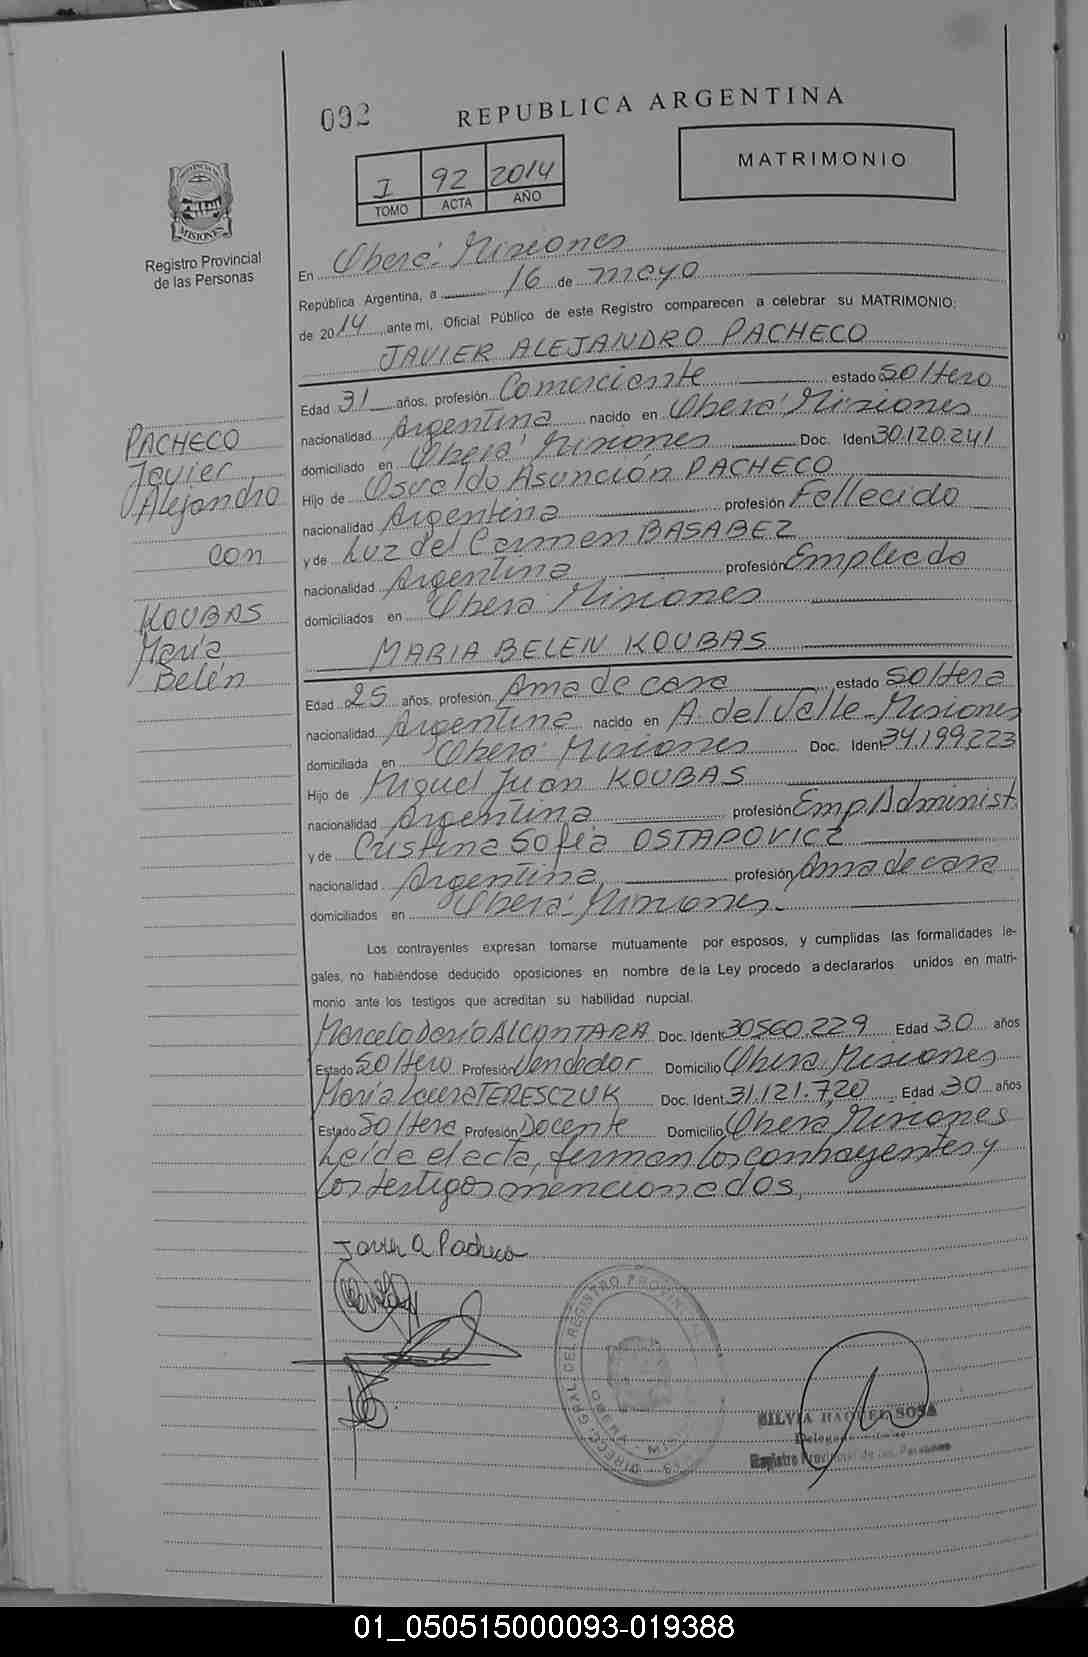 092
REPUBLICA ARGENTINA
I 92 2014
TOMO ACTA AÑO
MATRIMONIO
MISIONES
Registro Provincial
de las Personas
En Oberá Misiones
República Argentina, a 16 de mayo
de 2014 ante mi, Oficial Público de este Registro comparecen a celebrar su MATRIMONIO:
JAVIER ALEJANDRO PACHECO
Edad 31 años, profesión Comerciante estado soltero
nacionalidad Argentina nacido en Oberá Misiones
domiciliado en Oberá Misiones Doc. Ident 30.120.241
Hijo de Osvaldo Asunción PACHECO
nacionalidad Argentina profesión Fallecido
y de Luz del Carmen BASABEZ
nacionalidad Argentina profesión Empleada
domiciliados en Oberá Misiones
PACHECO
Javier
Alejandro
con
KOUBAS
María
Belén
MARIA BELEN KOUBAS
Edad 25 años, profesión Ama de casa estado soltera
nacionalidad Argentina nacido en A. del Valle-Misiones
domiciliada en Oberá Misiones Doc. Ident 34.199.223
Hijo de Miguel Juan KOUBAS
nacionalidad Argentina profesión Emp. Administ.
y de Cristina Sofía OSTAPOVICZ
nacionalidad Argentina profesión Ama de casa
domiciliados en Oberá Misiones.
Los contrayentes expresan tomarse mutuamente por esposos, y cumplidas las formalidades le-
gales, no habiéndose deducido oposiciones en nombre de la Ley procedo a declararlos unidos en matri-
monio ante los testigos que acreditan su habilidad nupcial.
Marcelo Darío ALCANTARA Doc. Ident 30560.229 Edad 30 años
Estado Soltero Profesión Vendedor Domicilio Oberá Misiones
María Laura TERESCZUK Doc. Ident 31.121.720 Edad 30 años
Estado Soltera Profesión Docente Domicilio Oberá, Misiones
Leída el acta, firman los contrayentes y
los testigos mencionados,
Javier A Pacheco
DIREC. GRAL. DEL REGISTRO PROVINCIAL
SILVIA RAQUEL SOSA
Registro Provincial de las Personas
01_050515000093-019388